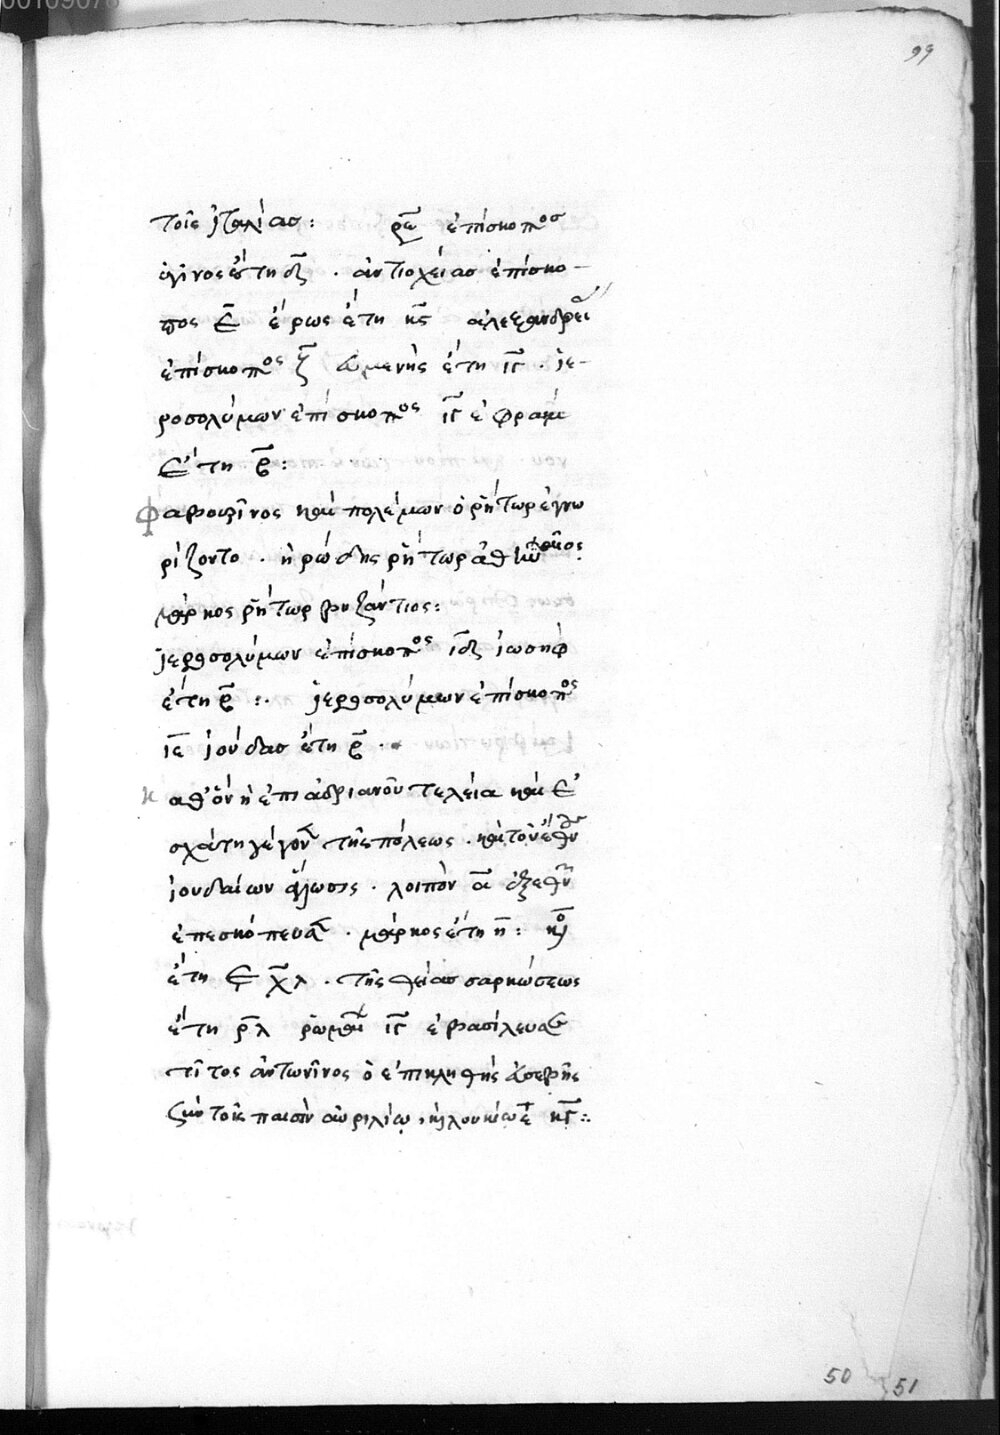 99
τοῖς ἰταλίασ: ἐπίσκοπος
ὑγῖνος ἔτη δ̅ . ἀντιοχείασ ἐπίσκο-
πος ε̅ ἔρως ἔτη κϛ̅ ἀλεξανδρεί
ἐπίσκοπος ζ̅ ἔτη ιγ̅ . ἱε-
ροσολύμων ἐπίσκοπος ιγ̅ ἐφραΐμ
ἔτη β̅:
φαβωρῖνος καὶ πολέμων ὁ ῥήτωρ ἐγνω
ρίζοντο . ἡρώδης ῥήτωρ
μάρκος ῥήτωρ βυζάντιος:
ἱεροσολύμων ἐπίσκοπος ιδ̅ ἰωσηφ
ἔτη β̅ :. ἱεροσολύμων ἐπίσκοπος
ιε̅ ἰούδασ ἔτη β̅ .
καθ' ὃν ἡ ἐπι ἀδριανοῦ τελεία καὶ ἐ
σχάτη γέγον τῆς πόλεως .
ἰουδαίων ἅλωσις . λοιπὸν α̅ ἐξ ἐθν
ἐπεσκόπευσ . μάρκος ἔτη η̅:
ἔτη ε̅χ̅λ . τῆς θείασ σαρκώσεως
ἔτη ρ̅λ ῥωμαί ιγ̅ ἐβασίλευσ
τίτος ἀντωνῖνος ὁ ἐπικληθὴς
σὺν τοῖς παισὶν αὐριλίω, κὶ λουκίω ἔ κγ̅:.
50
51